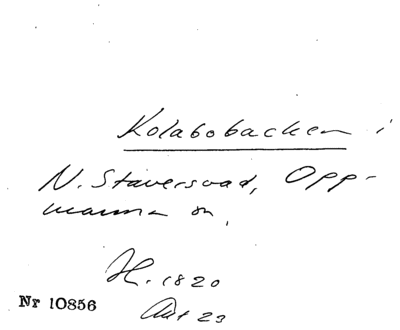 Kolabobacken i
N. Staversvad, Opp-
manna sn.
H. 1820
Akt 23
Nr 10856